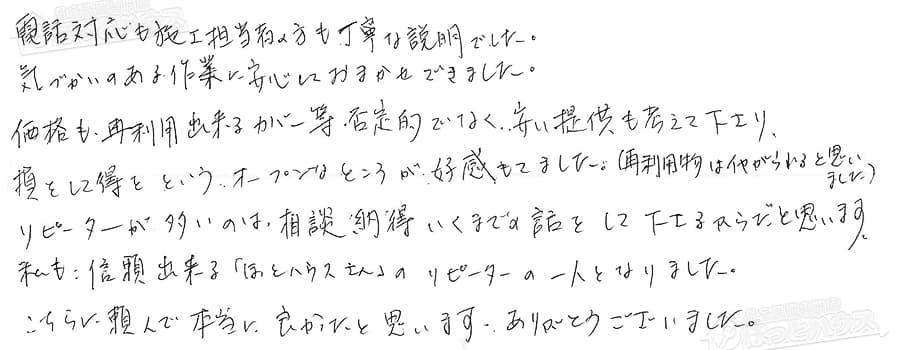 電話対応も施工担当者の方も丁寧な説明でした。
気づかいのある作業に安心しておまかせできました。
価格も、再利用出来るカバー等、否定的でなく、安い提供も考えて下さり、
損をして得をという、オープンなところが、好感もてました。(再利用物はイヤがられると思いました)
リピーターが多いのは、相談、納得いくまでの話をして下さるからだと思います。
私も、信頼出来る「ほっとハウスさん」のリピーターの一人となりました。
こちらに頼んで本当に良かったと思います。ありがとうございました。
ほっとハウス